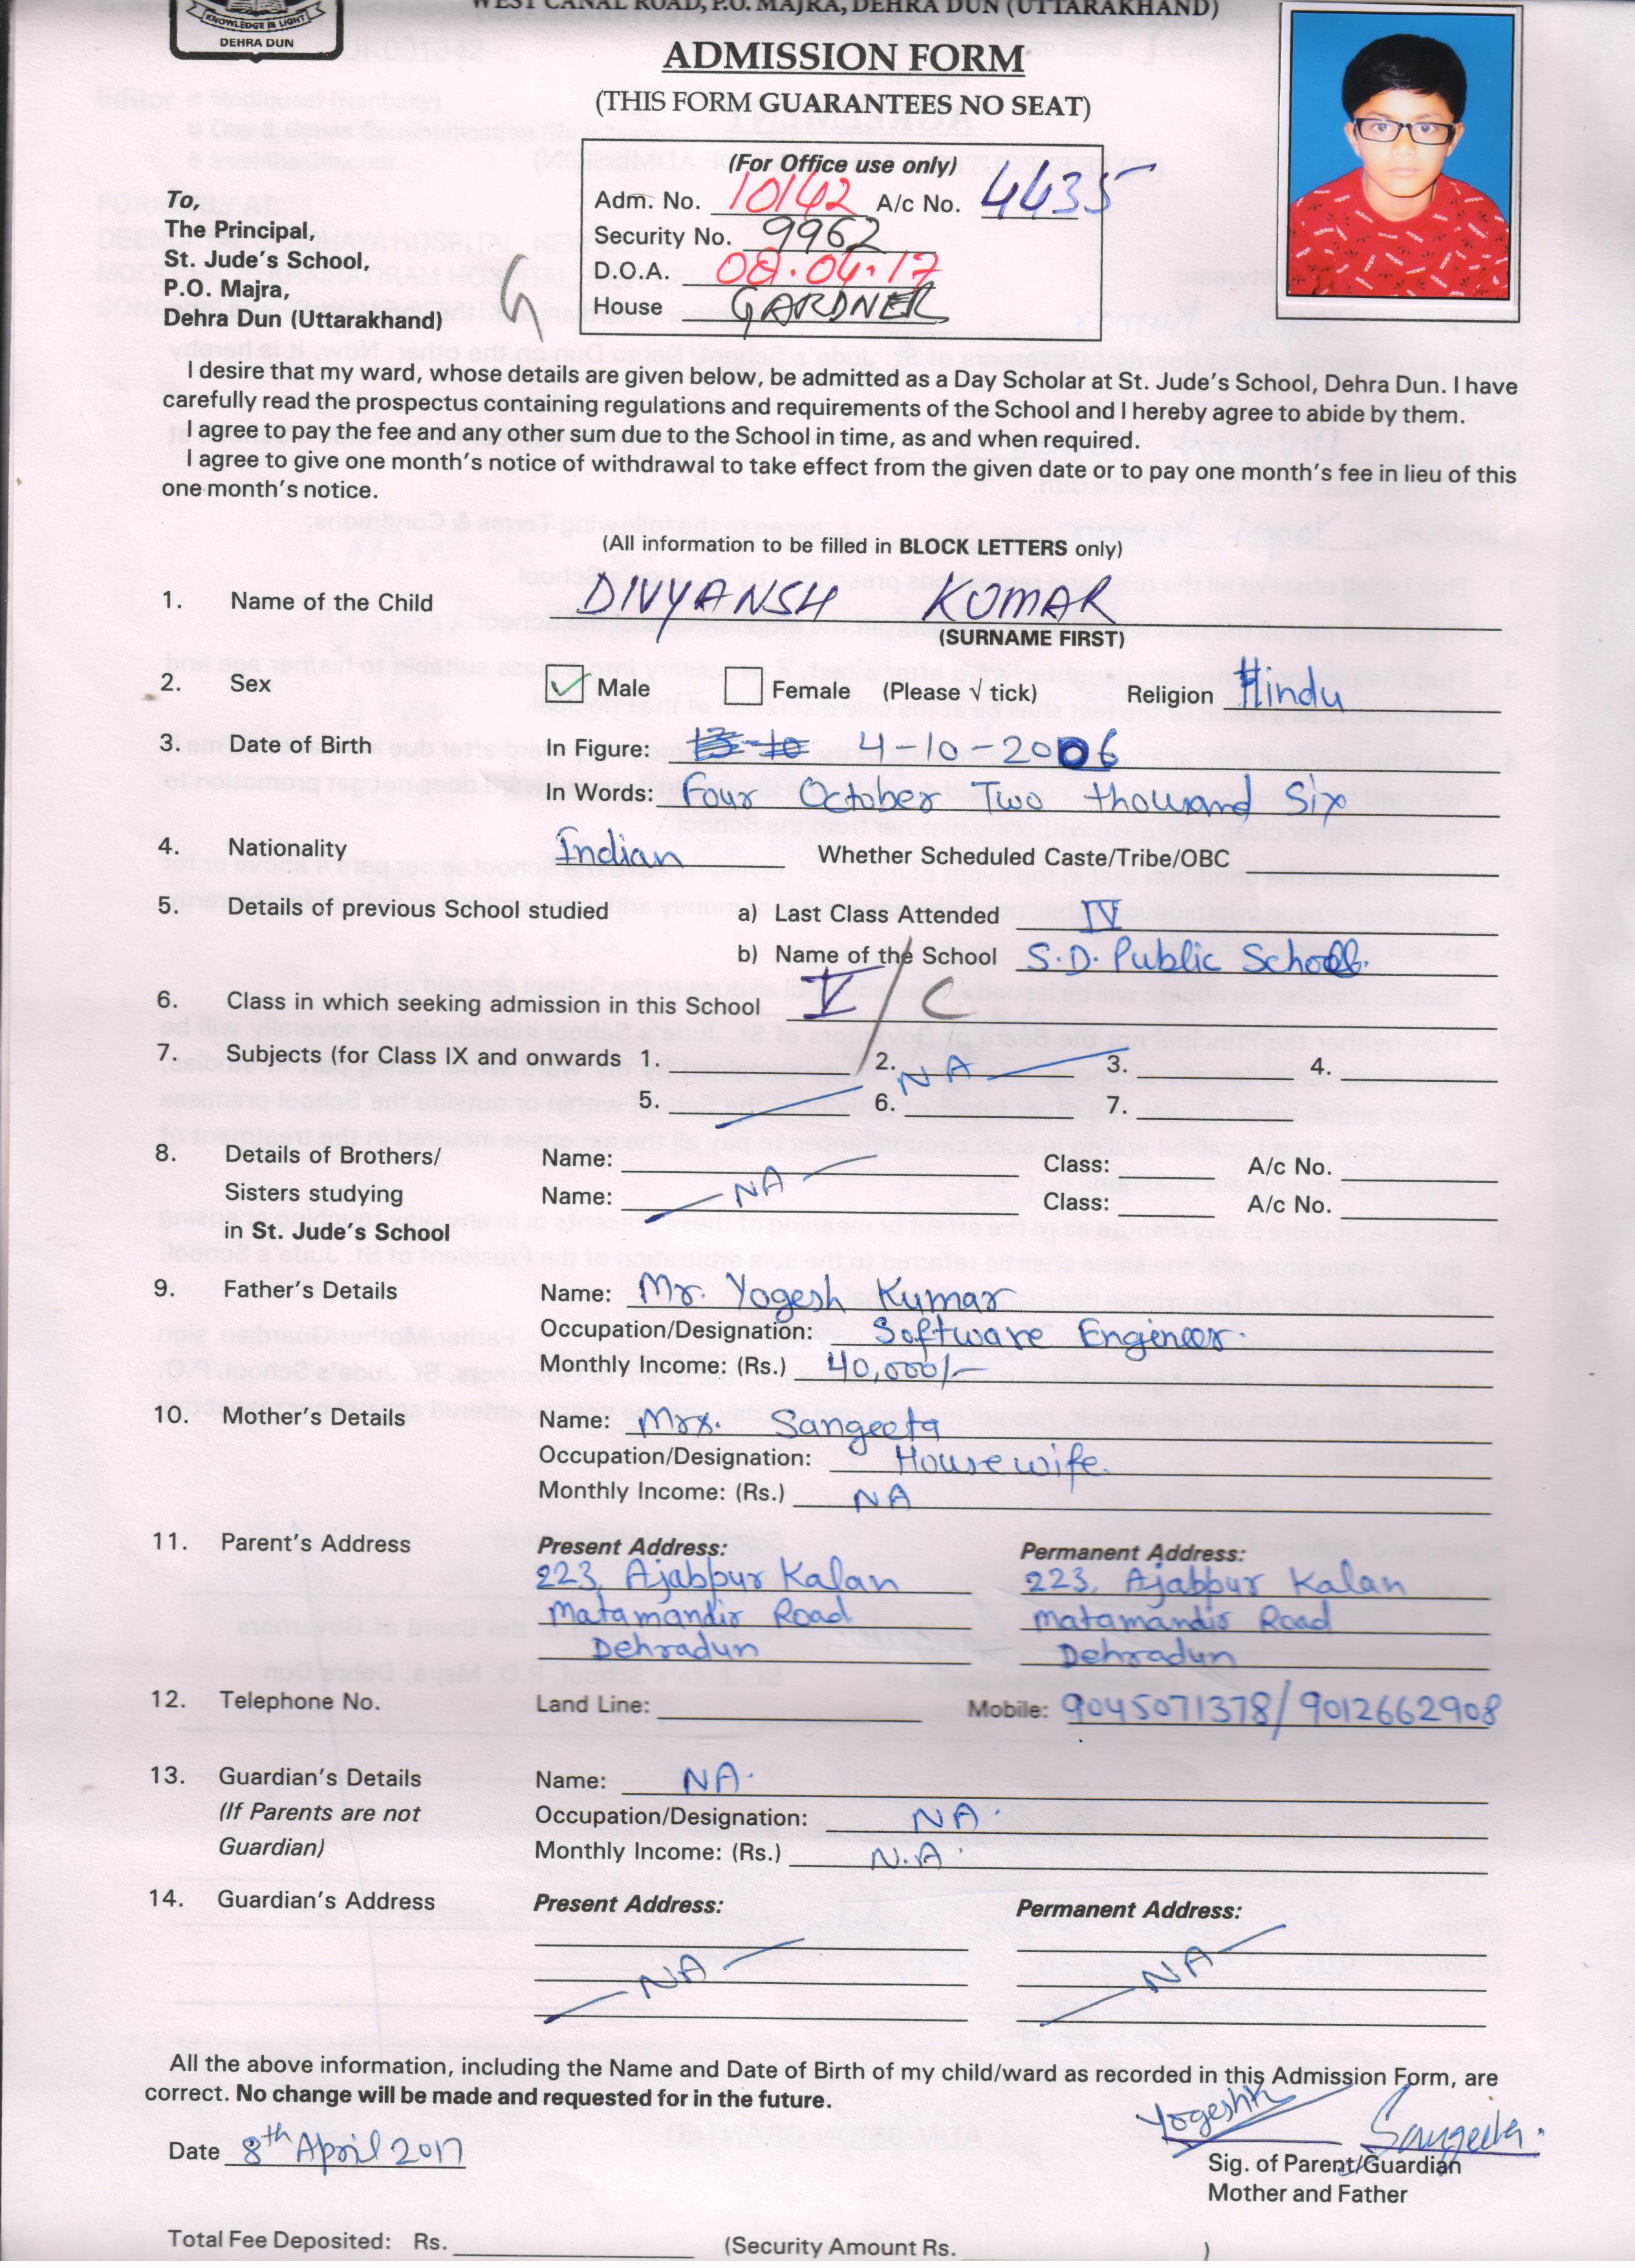 KNOWLEDGE IS LIGHT
DEHRA DUN
WEST CANAL ROAD, P.O. MAJRA, DEHRA DUN (UTTARAKHAND)
ADMISSION FORM
(THIS FORM GUARANTEES NO SEAT)
(For Office use only)
Adm. No. 10142 A/c No. 4435
Security No. 9962
D.O.A. 08.04.17
House GARDNER
To,
The Principal,
St. Jude's School,
P.O. Majra,
Dehra Dun (Uttarakhand)
G
I desire that my ward, whose details are given below, be admitted as a Day Scholar at St. Jude's School, Dehra Dun. I have
carefully read the prospectus containing regulations and requirements of the School and I hereby agree to abide by them.
I agree to pay the fee and any other sum due to the School in time, as and when required.
I agree to give one month's notice of withdrawal to take effect from the given date or to pay one month's fee in lieu of this
one month's notice.
(All information to be filled in BLOCK LETTERS only)
1. Name of the Child DIVYANSH KUMAR
(SURNAME FIRST)
2. Sex Male Female (Please √ tick) Religion Hindu
3. Date of Birth In Figure: 4-10-2006
In Words: Four October Two thousand Six
4. Nationality Indian Whether Scheduled Caste/Tribe/OBC
5. Details of previous School studied a) Last Class Attended IV
b) Name of the School S.D. Public School.
6. Class in which seeking admission in this School V / C
7. Subjects (for Class IX and onwards 1. 2. NA 3. 4.
5. 6. 7.
8. Details of Brothers/ Name: Class: A/c No.
Sisters studying Name: NA Class: A/c No.
in St. Jude's School
9. Father's Details Name: Mr. Yogesh Kumar
Occupation/Designation: Software Engineer.
Monthly Income: (Rs.) 40,000/-
10. Mother's Details Name: Mrs. Sangeeta
Occupation/Designation: Housewife.
Monthly Income: (Rs.) NA
11. Parent's Address Present Address: Permanent Address:
223, Ajabpur Kalan 223, Ajabpur Kalan
Matamandir Road Matamandir Road
Dehradun Dehradun
12. Telephone No. Land Line: Mobile: 9045071378/9012662908
13. Guardian's Details Name: NA.
(If Parents are not Occupation/Designation: NA.
Guardian) Monthly Income: (Rs.) N.A.
14. Guardian's Address Present Address: Permanent Address:
NA NA
All the above information, including the Name and Date of Birth of my child/ward as recorded in this Admission Form, are
correct. No change will be made and requested for in the future.
Yogeshk Sangeeta.
Date 8th April 2017
Sig. of Parent/Guardian
Mother and Father
Total Fee Deposited: Rs. (Security Amount Rs. )